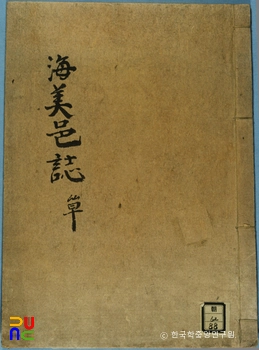 海美邑誌 草
ⓒ 한국학중앙연구원